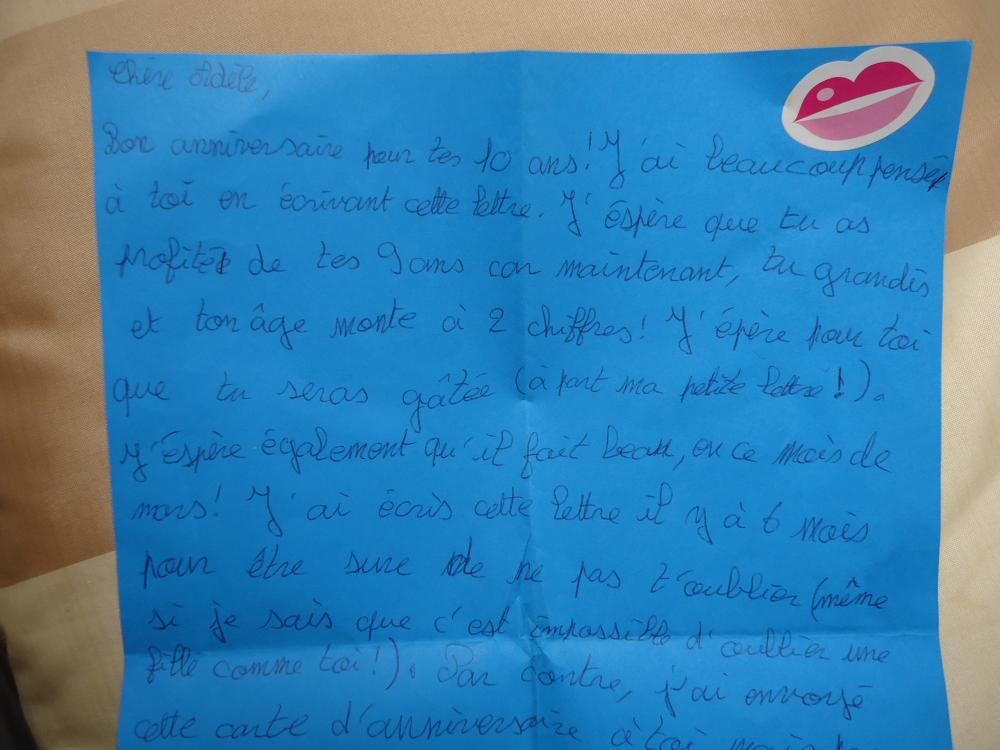 Chère Adèle,
Bon anniversaire pour tes 10 ans! J'ai beaucoup pensé
à toi en écrivant cette lettre. J'éspère que tu as
profité de tes 9 ans car maintenant, tu grandis
et ton âge monte à 2 chiffres! J'épère pour toi
que tu seras gâtée (à part ma petite lettre!).
J'éspère également qu'il fait beau, en ce mois de
mars! J'ai écris cette lettre il y à 6 mois
pour être sure de ne pas t'oublier (même
si je sais que c'est impossible d'oublier une
fille comme toi!). Par contre, j'ai envoyé
cette carte d'anniversaire à toi mais